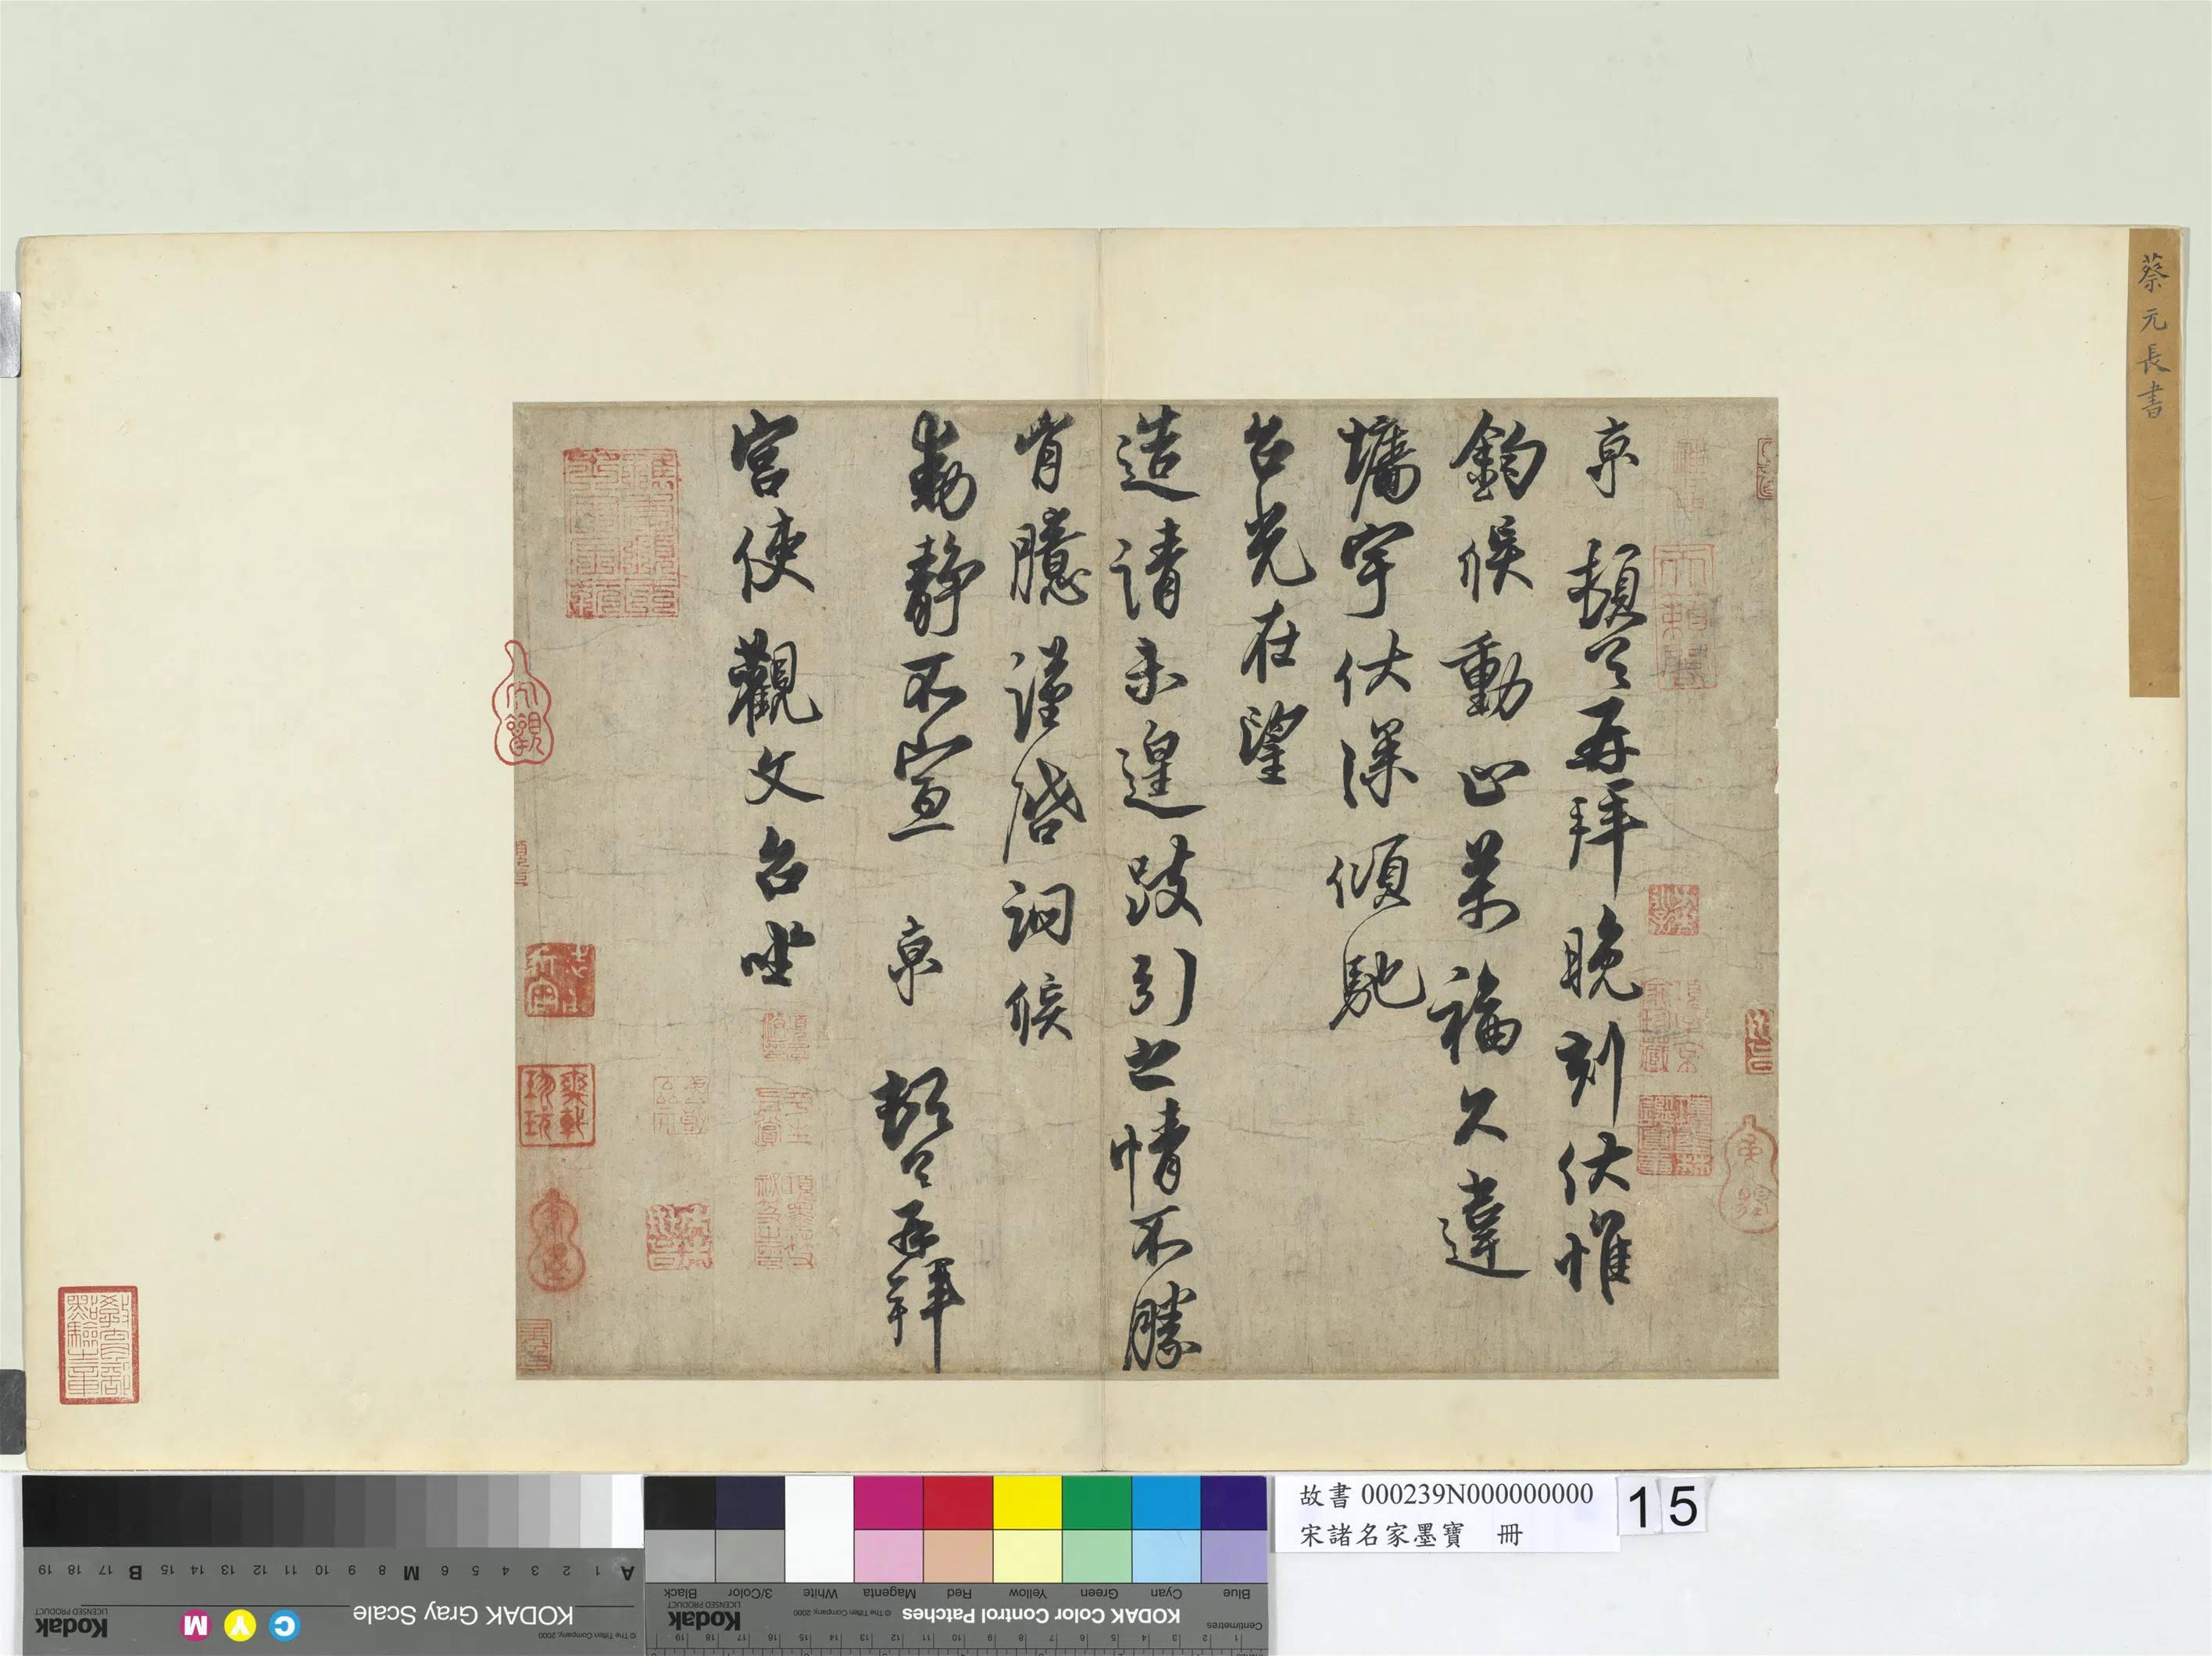 蔡元長書
京頓首再拜晚刻伏惟
鈞候動止萬福久違
墉宇伏深傾馳
台光在望
造請未遑跂引之情不勝
肯臆謹啓詗候
動靜不宣 京 頓首再拜
宮使觀文台坐
大觀
教育部點驗之章
故書 000239N000000000
宋諸名家墨寶 冊
15
KODAK Gray Scale
Kodak
LICENSED PRODUCT
© The Tiffen Company, 2000
C Y M
A 1 2 3 4 5 6 M 8 9 10 11 12 13 14 15 B 17 18 19
KODAK Color Control Patches
Kodak
LICENSED PRODUCT
© The Tiffen Company, 2000
Blue Cyan Green Yellow Red Magenta White 3/Color Black
Centimetres